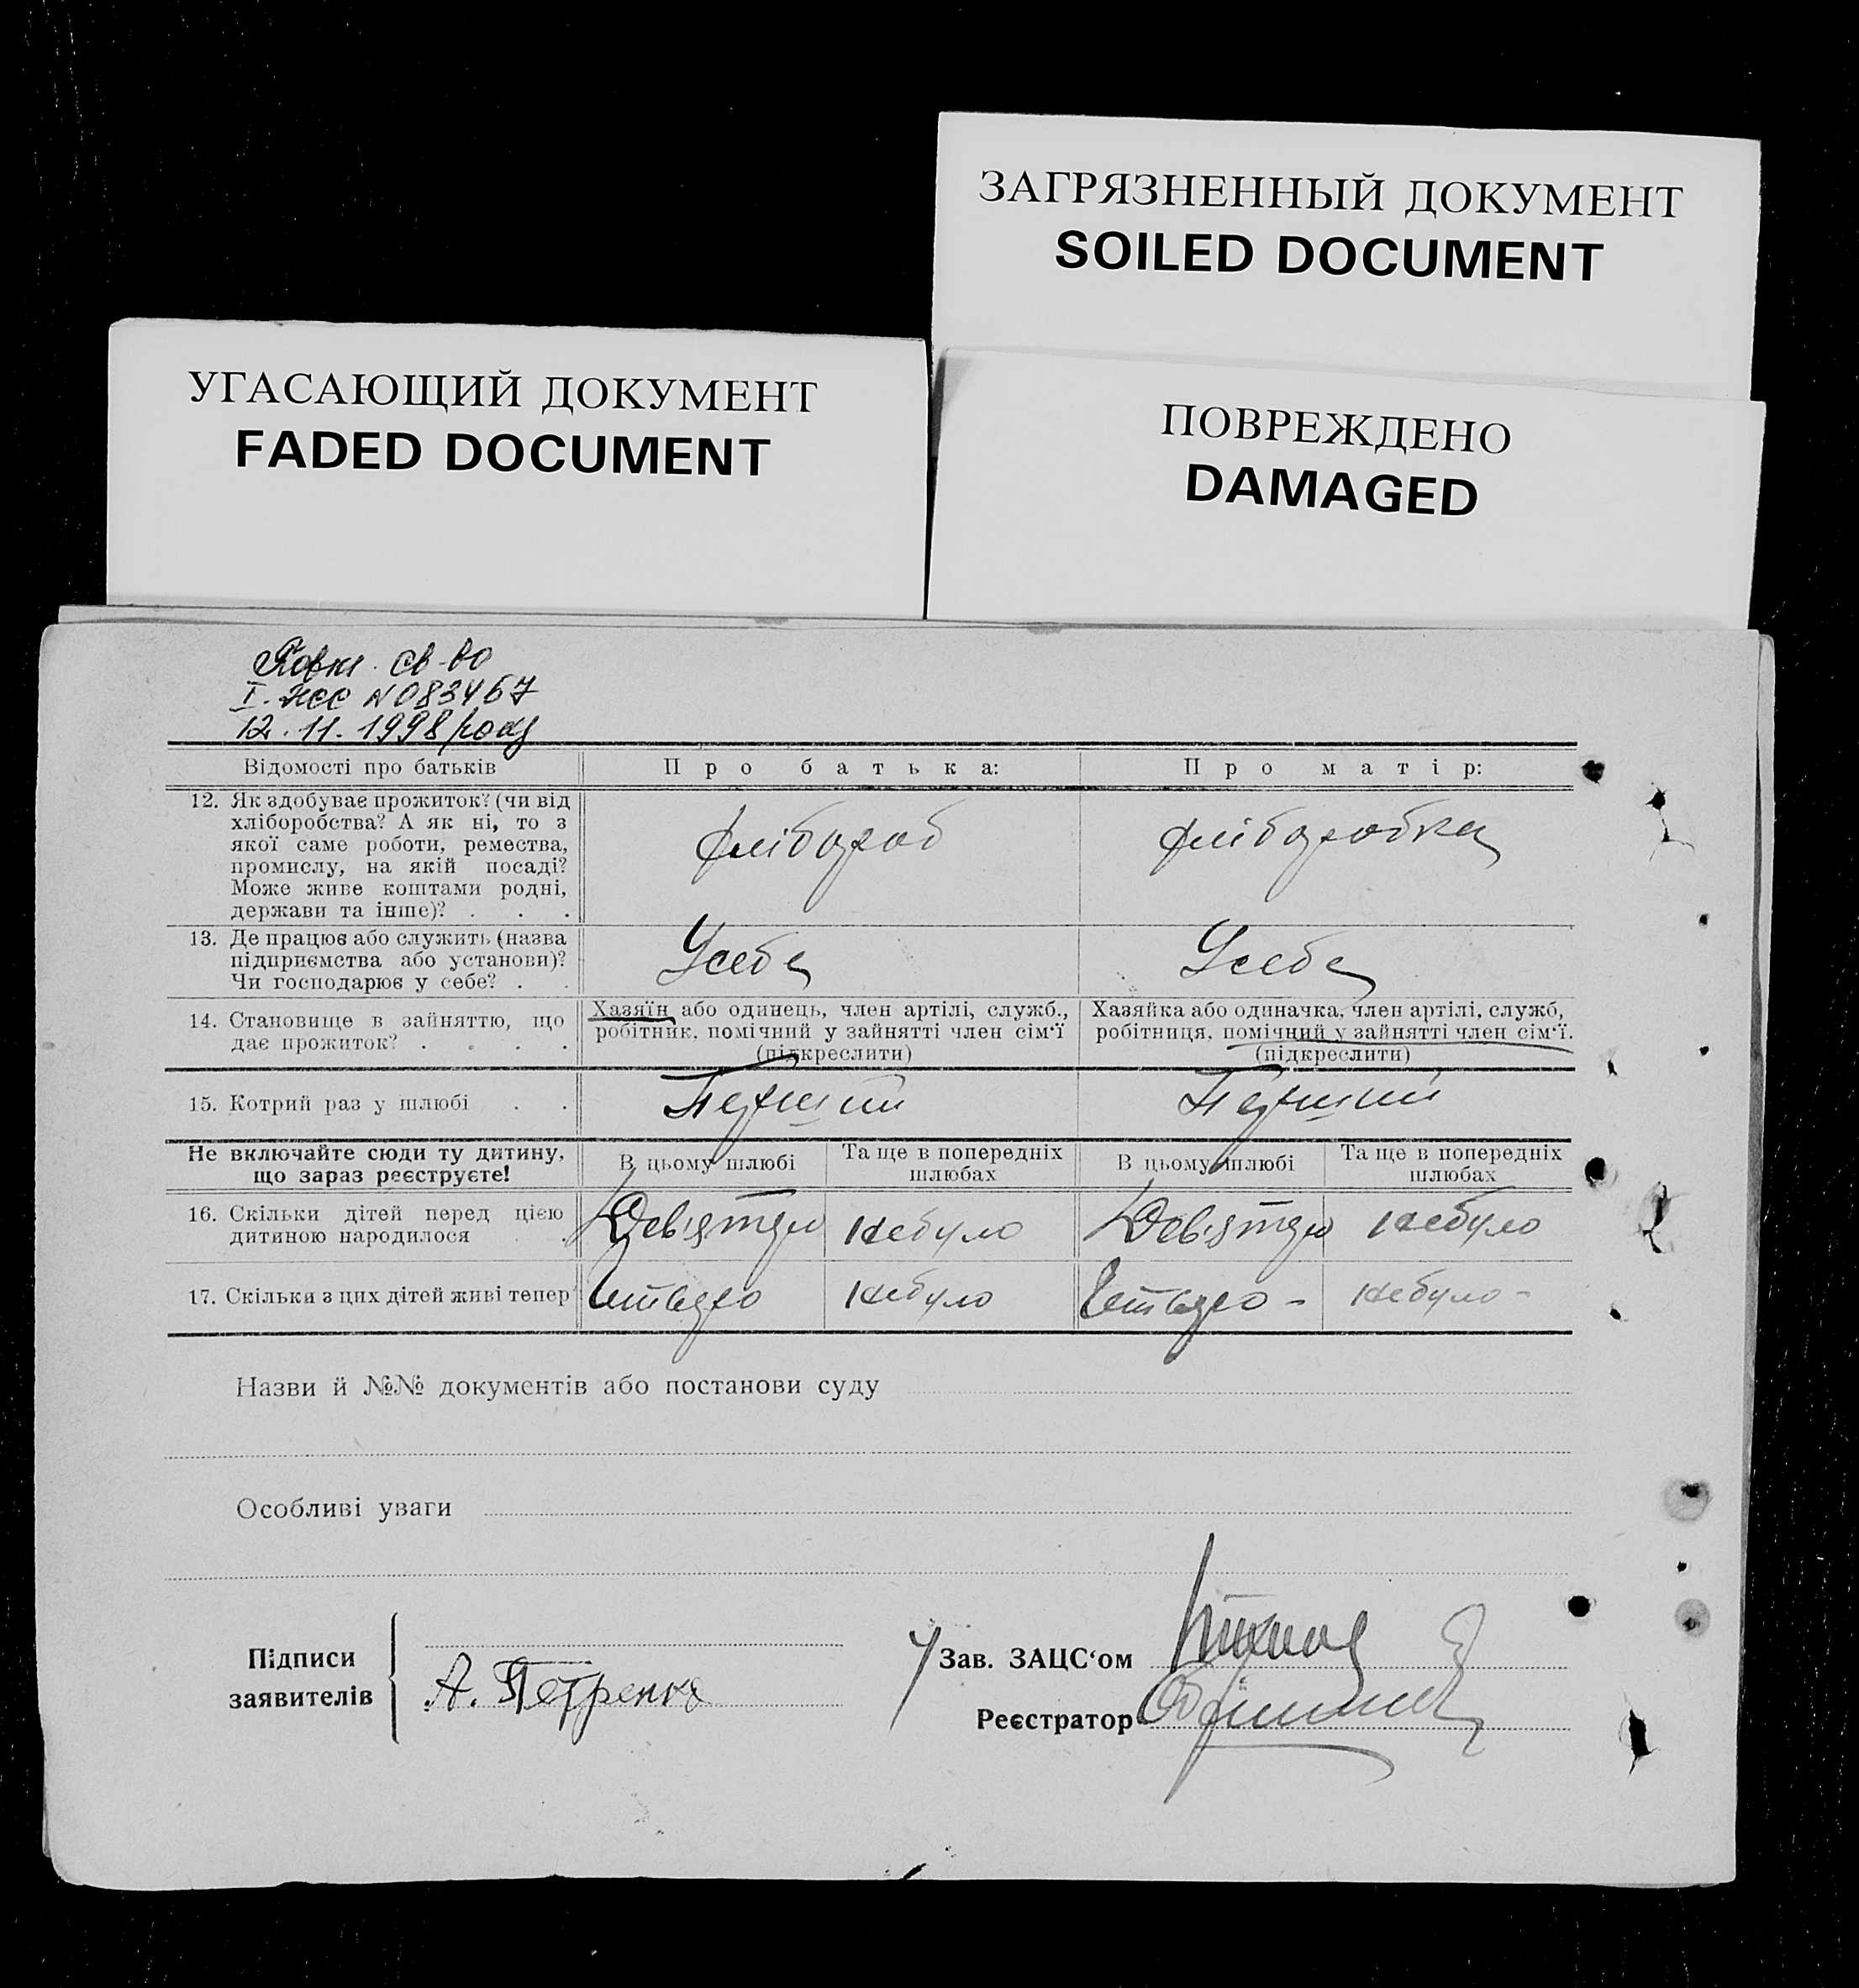 ЗАГРЯЗНЕННЫЙ ДОКУМЕНТ
SOILED DOCUMENT
УГАСАЮЩИЙ ДОКУМЕНТ
FADED DOCUMENT
ПОВРЕЖДЕНО
DAMAGED
св-во
І-ЖСС N083467
12.11.1998 року
Відомості про батьків Про батька: Про матір:
12. Як здобуває прожиток? (чи від
хліборобства? А як ні, то з
якої саме роботи, ремества,
промислу, на якій посаді?
Може живе коштами родні,
держави та інше)? . . .
хлібороб хліборобка
13. Де працює або служить (назва
підприємства або установи)?
Чи господарює у себе? . .
У себе У себе
14. Становище в зайняттю, що
дає прожиток? . . . .
Хазяїн або одинець, член артілі, служб.,
робітник, помічний у зайнятті член сім'ї
(підкреслити)
Хазяйка або одиначка, член артілі, служб,
робітниця, помічний у зайнятті член сім'ї.
(підкреслити)
15. Котрий раз у шлюбі . . Перший Перший
Не включайте сюди ту дитину,
що зараз реєструєте!
В цьому шлюбі Та ще в попередніх
шлюбах
В цьому шлюбі Та ще в попередніх
шлюбах
16. Скільки дітей перед цією
дитиною народилося . .
Дев'ятеро небуло Дев'ятеро небуло
17. Скільки з цих дітей живі тепер? Четверо небуло Четверо - небуло -
Назви й №№ документів або постанови суду
Особливі уваги
Підписи
заявителів
А. Петренко
Зав. ЗАЦС'ом
Реєстратор